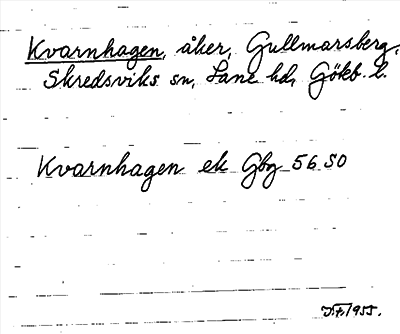 Kvarnhagen, åker, Gullmarsberg,
Skredsviks sn, Lane hd, Götéb. l.
Kvarnhagen ek Gbg 56 SO
1955.